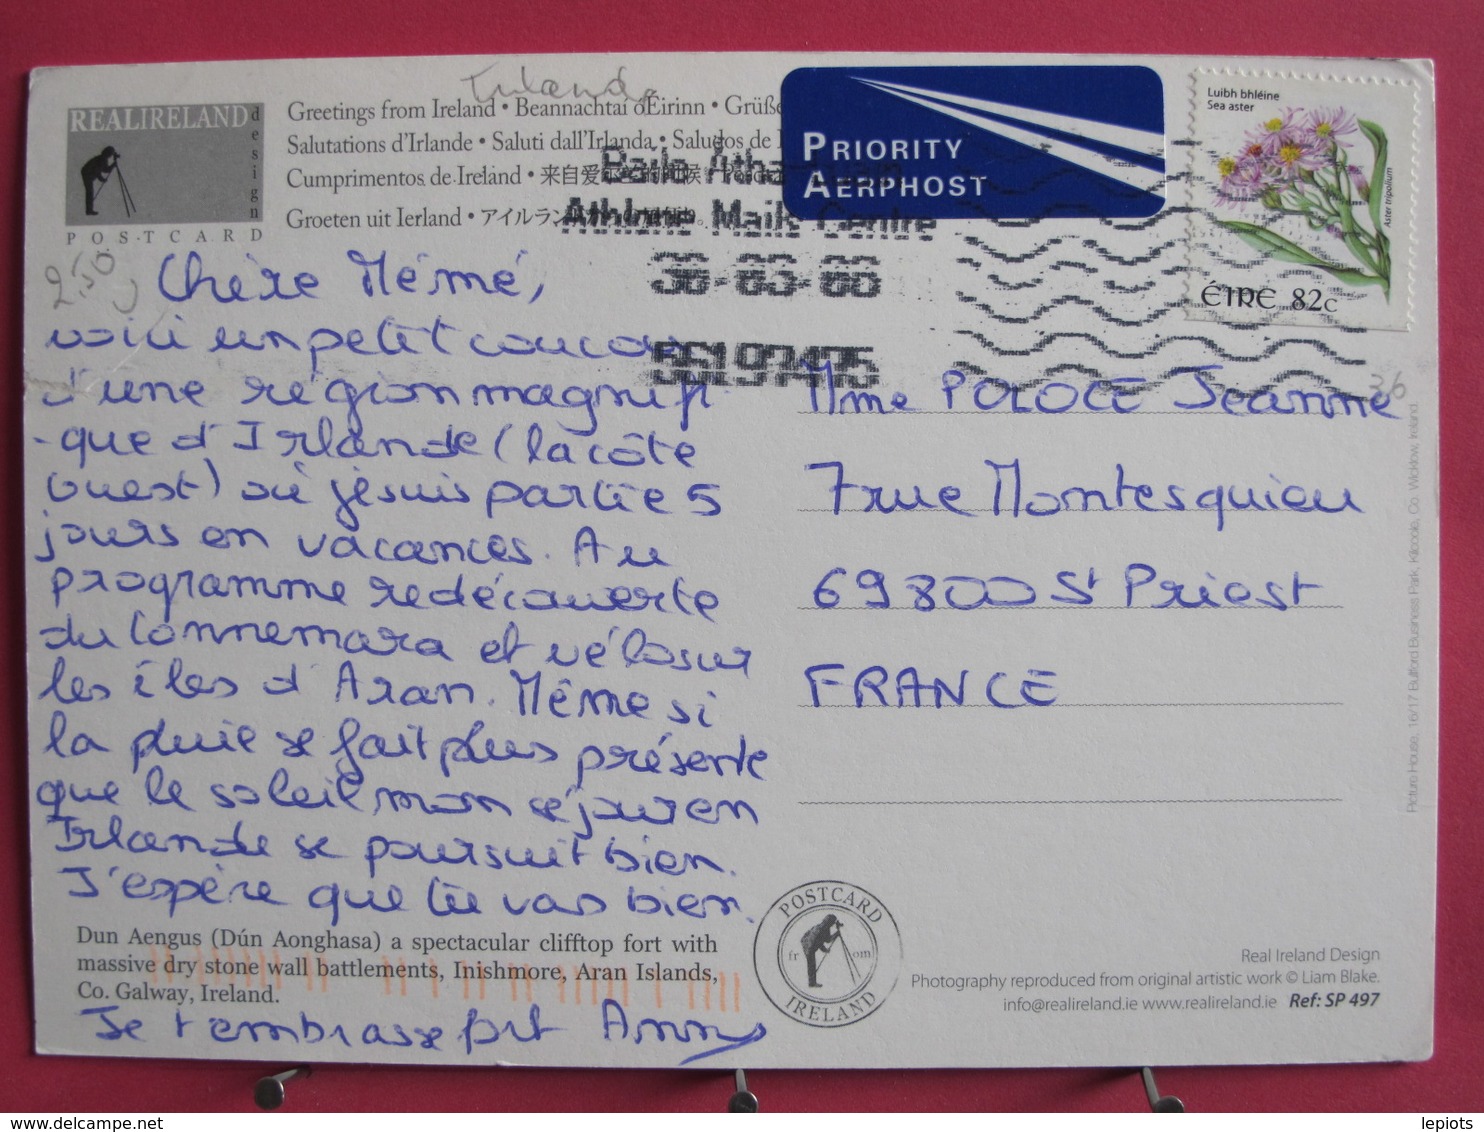 Irlande
REALIRELAND
design
POSTCARD
Greetings from Ireland • Beannachtaí óEirinn • Grüße
Salutations d'Irlande • Saluti dall'Irlanda • Saludos de I
Cumprimentos de Ireland • 来自爱
Groeten uit Ierland • アイルラン
Baile Átha
Athlone Mails Centre
96197475
PRIORITY
AERPHOST
Luibh bhléine
Sea aster
Aster tripolium
ÉIRE 82c
2,50
36
Chère Mémé,
voici un petit coucou
d'une région magnifi
-que d'Irlande (la côte
Ouest) où je suis partie 5
jours en vacances. Au
programme redécouverte
du Connemara et vélo sur
les îles d'Aran. Même si
la pluie se fait plus présente
que le soleil mon séjour en
Irlande se poursuit bien.
J'espère que tu vas bien.
Dun Aengus (Dún Aonghasa) a spectacular clifftop fort with
massive dry stone wall battlements, Inishmore, Aran Islands,
Co. Galway, Ireland.
Je t'embrasse frt Anny
Mme POLOCE Jeanne
7 rue Montesquieu
69800 St Priest
FRANCE
POSTCARD
from
IRELAND
Real Ireland Design
Photography reproduced from original artistic work © Liam Blake.
info@realireland.ie www.realireland.ie Ref: SP 497
Picture House, 16/17 Bullford Business Park, Kilcoole, Co. Wicklow, Ireland
delcampe.net
lepiots